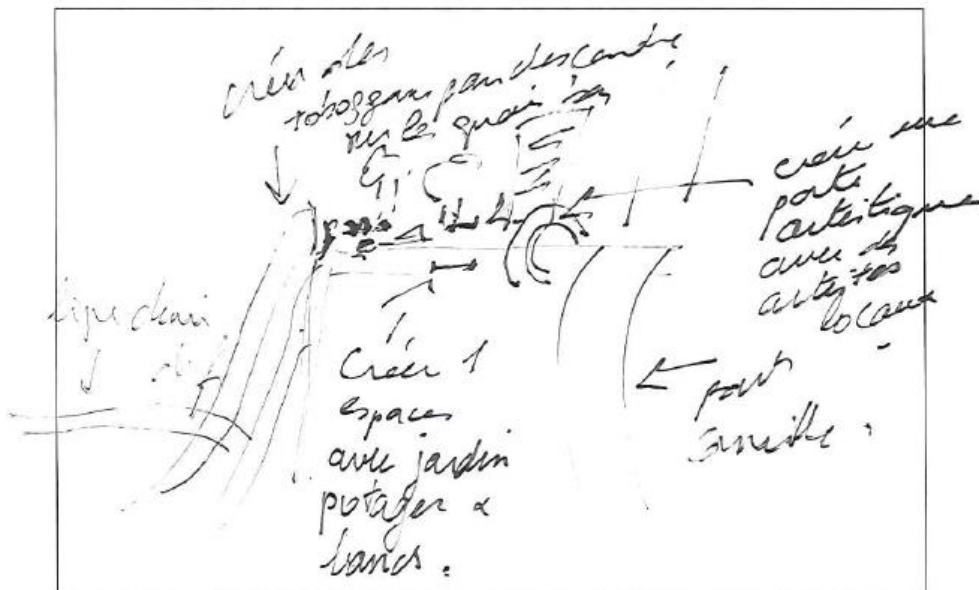 créer des
toboggans pour descendre
sur les quais
créer une
porte
artistique
avec des
artistes
locaux
Créer 1
espaces
avec jardin
potager &
bancs.
pont